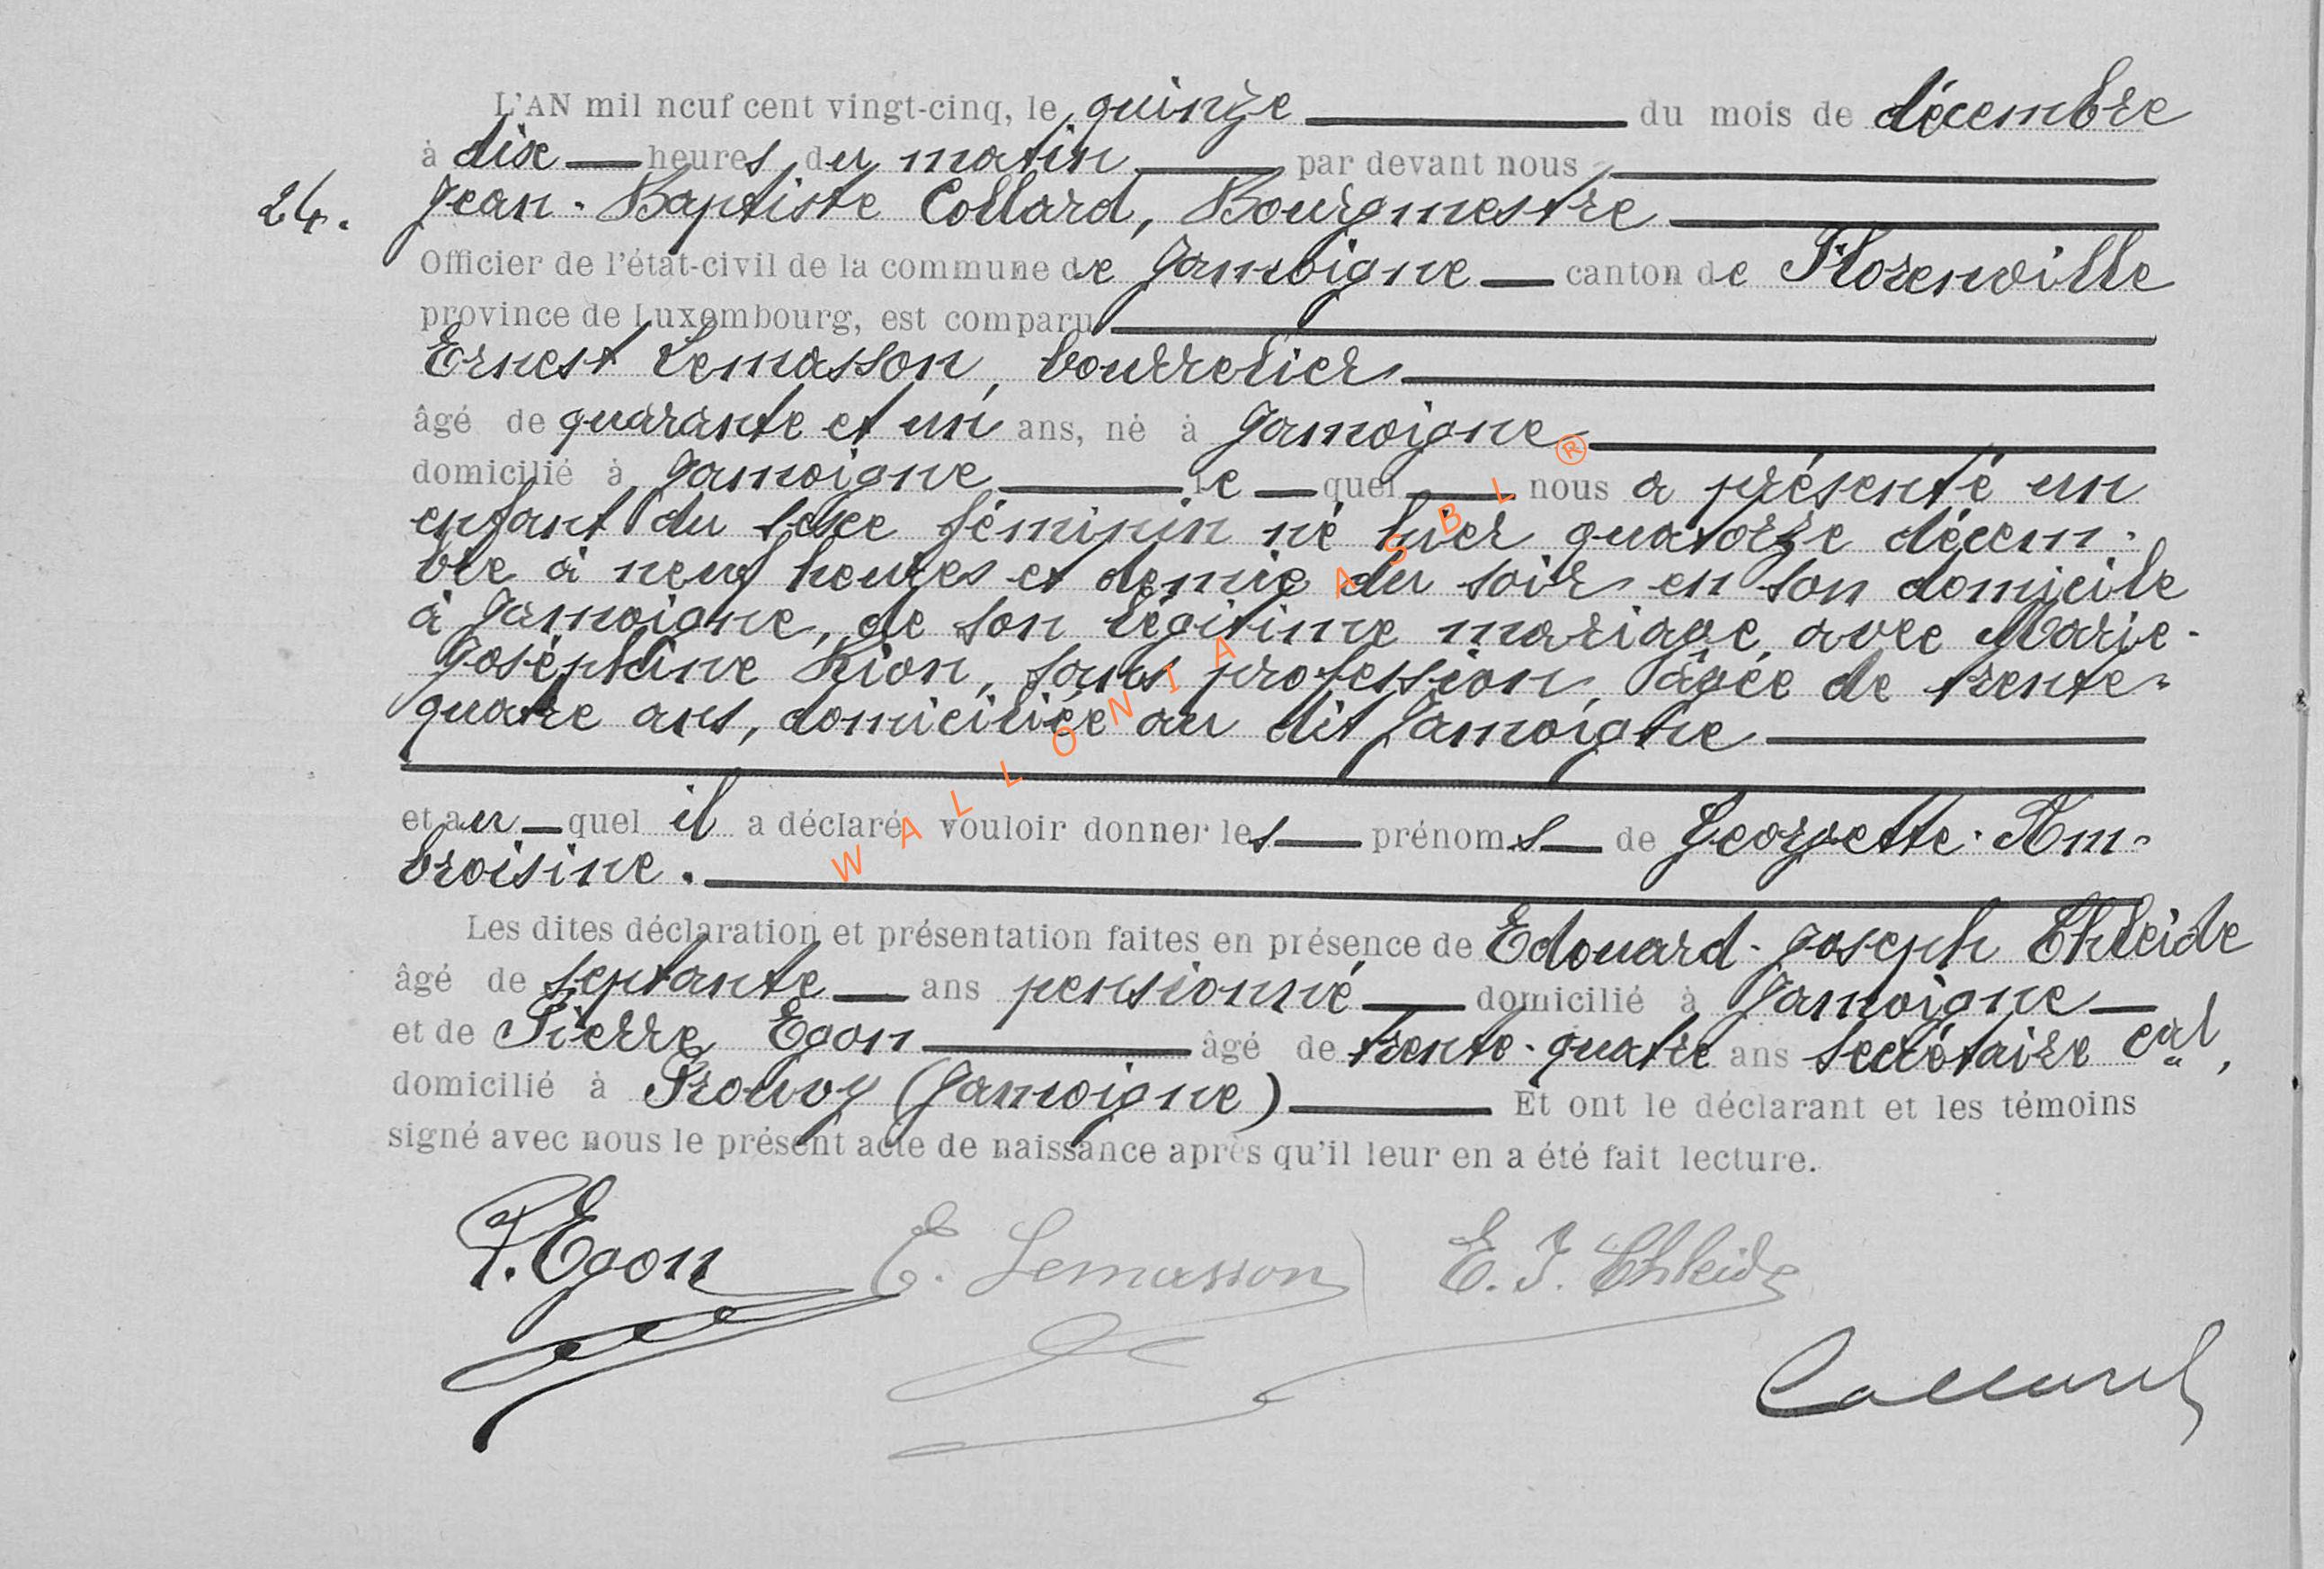 L'AN mil neuf cent vingt-cinq, le quinze du mois de décembre
à dix heures du matin par devant nous
24. Jean-Baptiste Collard, Bourgmestre
Officier de l'état-civil de la commune de Jamoigne canton de Florenville
province de Luxembourg, est comparu
Ernest Lemasson, bourrelier
âgé de quarante et un ans, né à Jamoigne
domicilié à Jamoigne le quel nous a présenté un
enfant du sexe féminin né hier quatorze décem-
bre à neuf heures et demie du soir en son domicile
à Jamoigne, de son légitime mariage avec Marie-
Joséphine Rion, sans profession, âgée de trente-
quatre ans, domiciliée au dit Jamoigne
et au quel il a déclaré vouloir donner les prénoms de Georgette-Am-
broisine.
Les dites déclaration et présentation faites en présence de Edouard-Joseph Thleide
âgé de septante ans pensionné domicilié à Jamoigne
et de Pierre Egon âgé de trente-quatre ans secrétaire cal,
domicilié à Prouvy (Jamoigne) Et ont le déclarant et les témoins
signé avec nous le présent acte de naissance après qu'il leur en a été fait lecture.
P. Egon E. Lemasson E. J. Thleide
Collard
WALLONIA ASBL ®